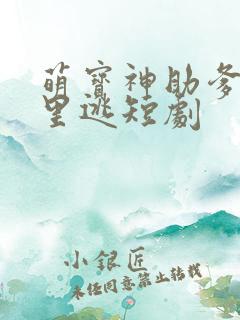 萌寶神助爹
里逃短劇
小銀匠
未任同意禁止转载